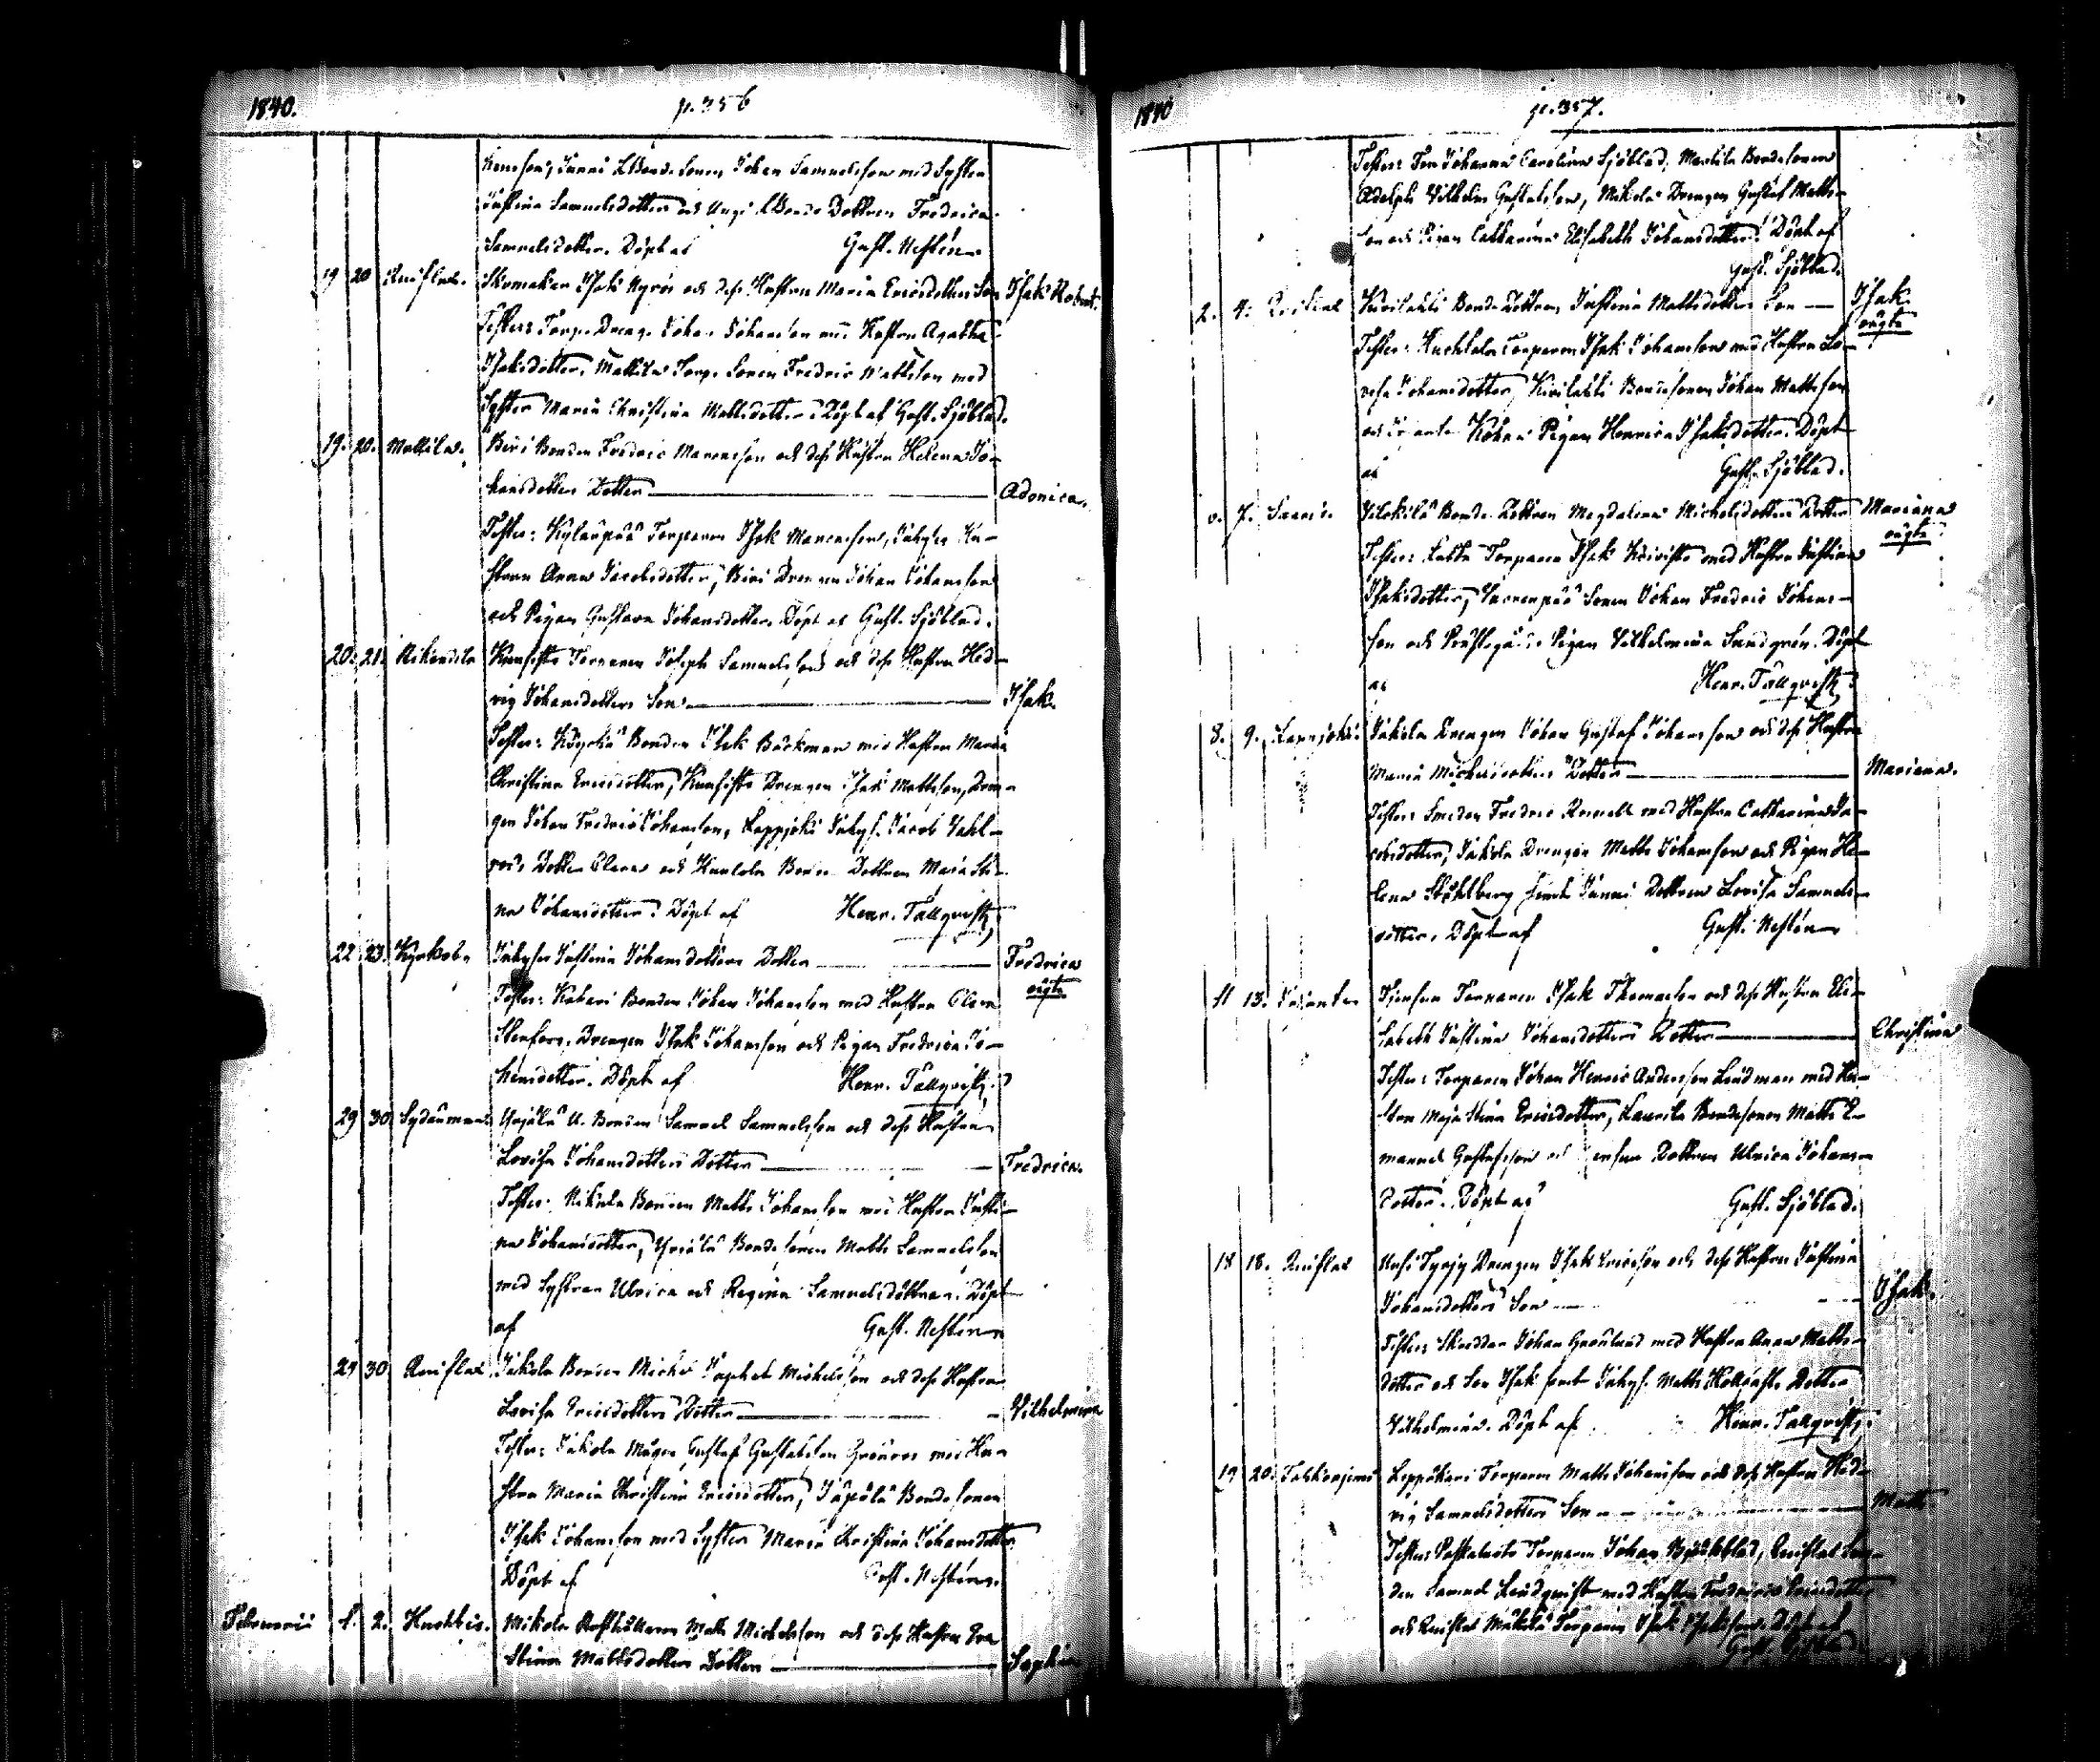 1840.
p. 356
Samuelsson, Junni L. Bonde Sonen Johan Samuelsson med Syster
Justina Samuelsdotter och Ungi L. Bonde Dottren Fredrica
Samuelsdotter. Döpt af Gust. Nestén
19 20 Quiflax. Skomakar Isak Nyroos och dess Hustru Maria Ericsdotters Son Isak Robert.
Testes: Torp. Dreng. Johan Johansson med Hustru Agatha
Isaksdotter, Mattila Torp. Sonen Fredric Mattsson med
Syster Maria Christina Mattsdotter. Döpt af Gust. Sjöblad.
19. 20. Mattila. Biri Bonden Fredric Marcusson och dess Hustru Helena Jo-
hansdotters Dotter Adonica.
Testes: Kylänpää Torparen Isak Marcusson, Inhyses Hu-
strun Anna Jacobsdotter, Biri Drengen Johan Johansson
och Pigan Gustava Johansdotter. Döpt af Gust. Sjöblad.
20. 21. Torparen Joseph Samuelsson och dess Hustru Hed-
vig Johansdotters Son Isak.
Testes: Bonden Isak Bäckman med Hustru Maria
Christina Ericsdotter, Drengen Isak Mattsson, Dren-
gen Johan Fredric Johansson, Lappjoki Inhys. Jacob Dahl-
Dotter Clara och Bonde Dottren Maria Sti-
na Johansdotter. Döpt af Henr. Tallqvist.
22 23. Kyrkob. Inhyses Justina Johansdotters Dotter Fredrica
oägta
Testes: Bonden Johan Johansson med Hustru Clara
Stenfors, Drengen Isak Johansson och Pigan Fredrica Jo-
hansdotter. Döpt af Henr. Tallqvist.
29 30 Sydänmaa Yrjälä U. Bonden Samuel Samuelsson och dess Hustru
Lovisa Johansdotters Dotter Fredrica.
Testes: Nikula Bonden Matts Johansson med Hustru Justi-
na Johansdotter, Yrjälä Bonde sonen Matts Samuelsson
med Systrar Ulrica och Regina Samuelsdöttrar. Döpt
af Gust. Nestén
29 30 Quiflax. Jakola Bonden Michel Japhet Michelsson och dess Hustru
Lovisa Ericsdotters Dotter Vilhelmina
Testes: Jakola Mågen Gustaf Gustafsson Grönroos med Hu-
stru Maria Christina Ericsdotter, Bonde sonen
Isak Johansson med Syster Maria Christina Johansdotter
Döpt af Gust. Nestén.
Februarii 1. 2. Mikola Matts Michelsson och dess Hustru Eva
Stina Mattsdotters Dotter Sophia
1840
p. 357.
Testes: Johanna Carolina Sjöblad, Mattila Bondesonen
Adolph Vilhelm Gustafsson, Nikola Drengen Gustaf Matts-
son och Pigan Catharina Elisabeth Johansdotter. Döpt af
Gust. Sjöblad.
2. 4. Kivilahti Bonde Dottren Justina Mattsdotters Son Isak
oägta
Testes: Torparen Isak Johansson med Hustru Lo-
visa Johansdotter, Kivilahti Bondesonen Johan Mattsson
och Pigan Henrica Isaksdotter. Döpt
af Gust. Sjöblad.
7. Bonde Dottren Magdalena Michelsdotters Dotter Mariana
oägta
Testes: Torparen Isak Koivisto med Hustru Justina
Isaksdotter, Sonen Johan Fredric Johans-
son och Prästgårds Pigan Vilhelmina Sundgrén. Döpt
af Henr. Tallqvist
8. 9. Lappjoki. Jakola Drengen Johan Gustaf Johansson och dess Hustru
Maria Michelsdotters Dotter Mariana.
Testes: Smeden Fredric med Hustru Catharina Ja-
cobsdotter, Jakola Drengen Matts Johansson och Pigan He-
lena Ståhlberg samt Junni Dottren Lovisa Samuels-
dotter. Döpt af Gust. Nestén
11 13. Torparen Isak Thomasson och dess Hustru Eli-
sabeth Justina Johansdotters Dotter Christina
Testes: Torparen Johan Henric Andersson Lindman med Hu-
stru Maja Stina Ericsdotter, Laurila Bondesonen Matts E-
manuel Gustafsson och Dottren Ulrica Johans-
dotter. Döpt af Gust. Sjöblad.
18 18. Quiflax Drengen Isak Ericsson och dess Hustru Justina
Johansdotters Son Isak.
Testes: Skräddar Johan Grönlund med Hustru Anna Matts-
dotter och Son Isak samt Inhys. Matts Dotter
Vilhelmina. Döpt af Henr. Tallqvist.
19 20. Torparen Matts Johansson och dess Hustru Hed-
vig Samuelsdotters Son Matts
Testes: Torparen Johan Björkblad, Quiflax
Samuel Lindqvist med Hustru Fredrica Ericsdotter
och Quiflax Mäkilä Torparen Isak Isaksson. Döpt af
Gust. Sjöblad